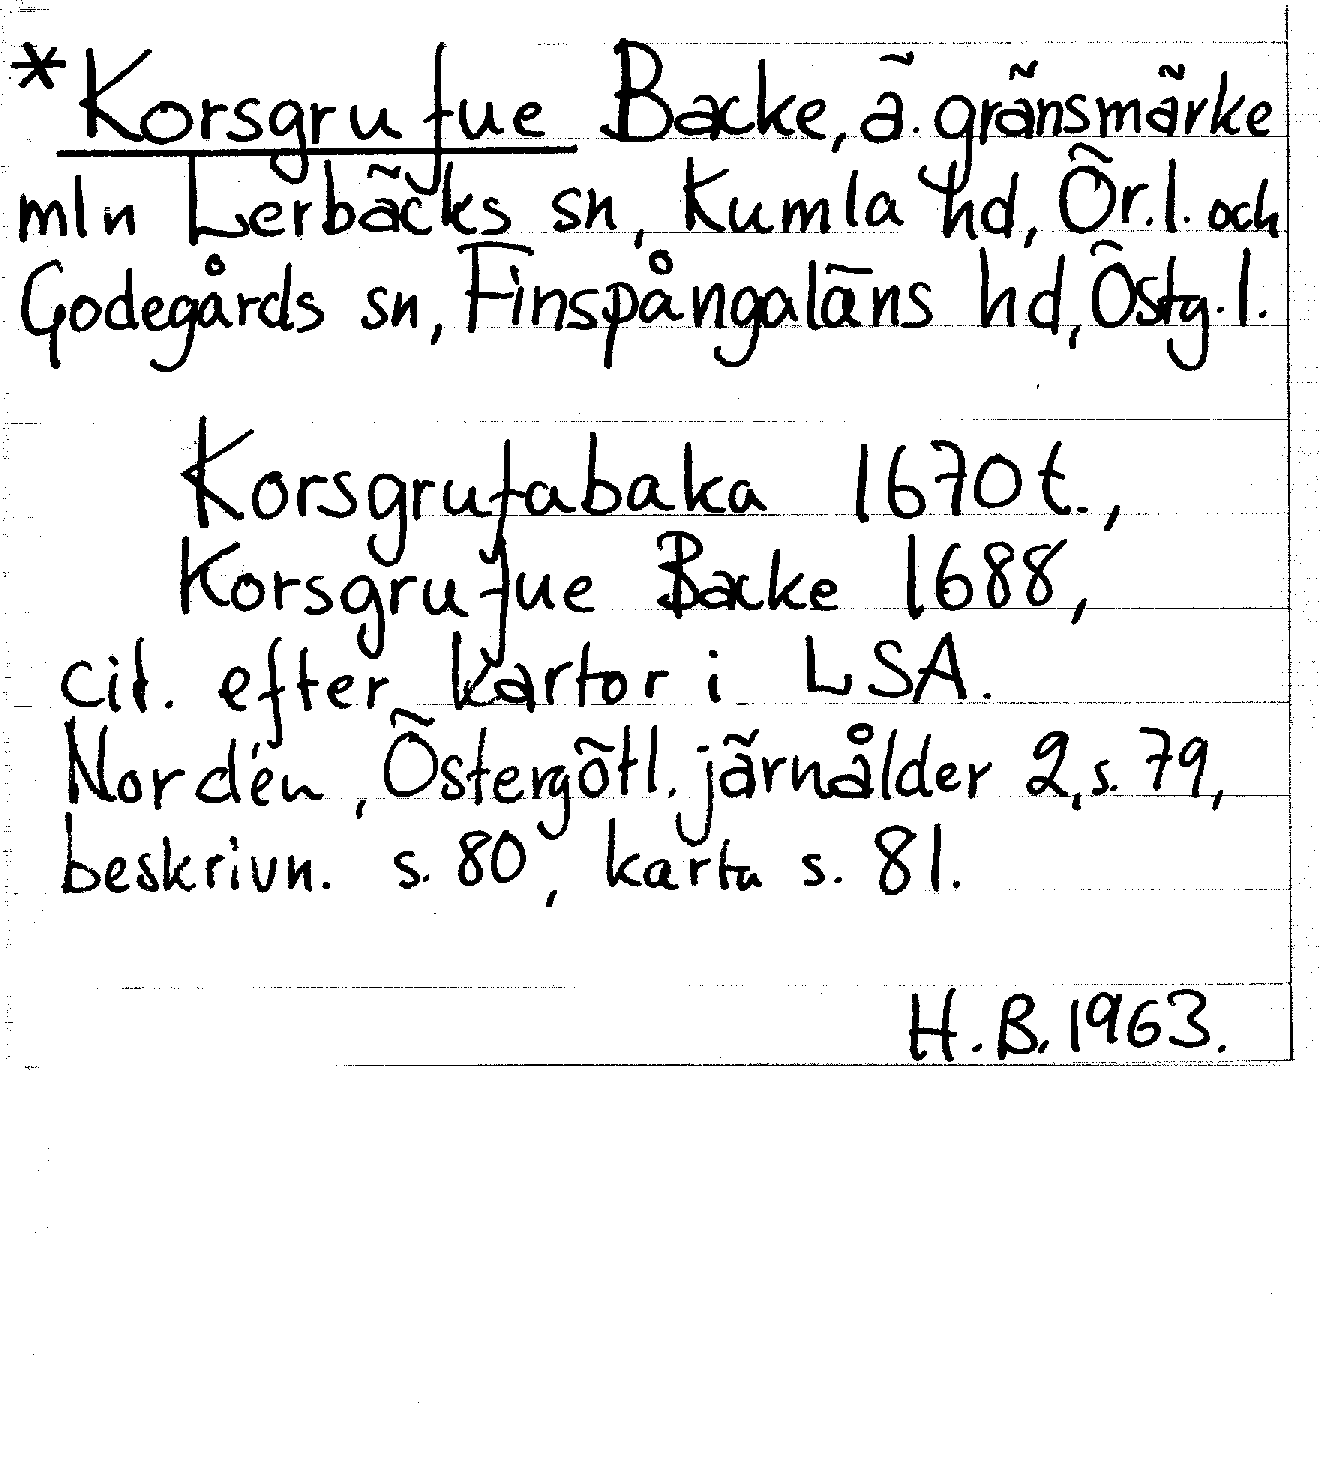 *Korsgrufue Backe, ä. gränsmärke
mln Lerbäcks sn, Kumla hd, Ör.l. och
Godegårds sn, Finspångaläns hd, Östg.l.
Korsgrufabaka 1670t.,
Korsgrufue Backe 1688,
cit. efter kartor i LSA.
Nordén, Östergötl. järnålder 2, s. 79,
beskrivn. s. 80, karta s. 81.
H.B. 1963.